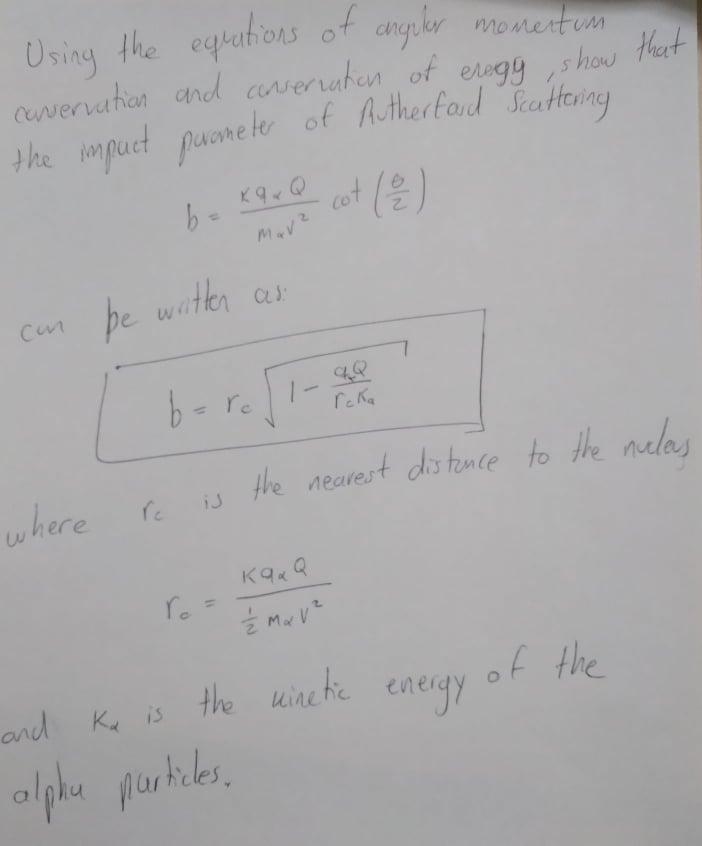 Using the equations of angular momentum
conservation and conservation of enegy, show that
the impact parameter of Rutherford Scattering
b = Kqα Q / mαv² cot (θ/2)
can be written as:
b = rc √(1 - qαQ / rcKα)
where rc is the nearest distance to the nucleus
ro = Kqα Q / ½ mα v²
and Kα is the kinetic energy of the
alpha particles.